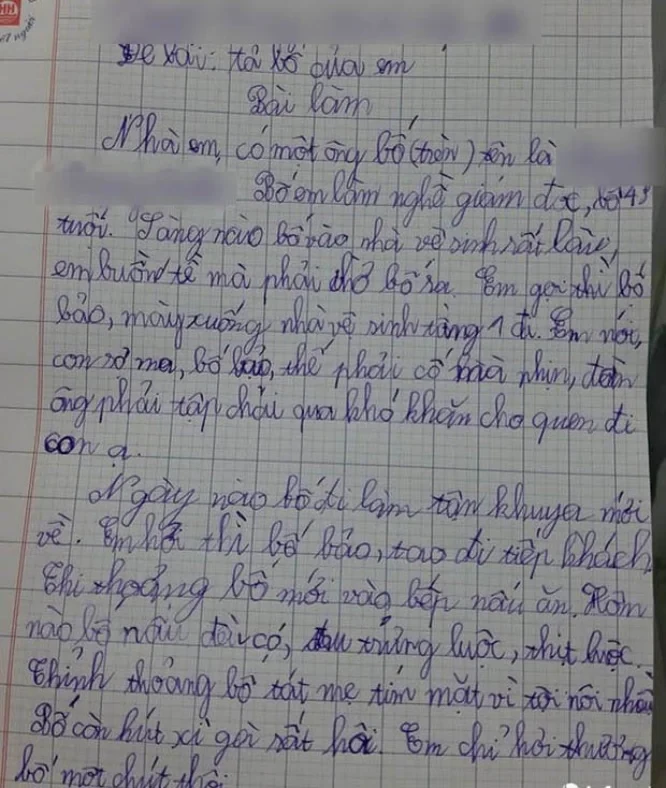 HH
Đề bài: tả bố của em
Bài làm
Nhà em, có một ông bố (trên) tên là
Bố em làm nghề giám đốc, bố 43
tuổi. Sáng nào bố vào nhà vệ sinh rất lâu,
em buồn tè mà phải chờ bố ra. Em gọi thì bố
bảo, mày xuống nhà vệ sinh tầng 1 đi. Em nói,
con sợ ma, bố bảo, thế phải cố mà nhịn, đàn
ông phải tập chải qua khó khăn cho quen đi
con ạ.
Ngày nào bố đi làm tận khuya mới
về. Em hỏi thì bố bảo, tao đi tiếp khách.
Thi thoảng bố mới vào bếp nấu ăn. Hôm
nào bố nấu đều có, trứng luộc, thịt luộc.
Thỉnh thoảng bố tát mẹ tím mặt vì tội nói nhều
Bố còn hút xì gà rất hôi. Em chỉ hơi thương
bố một chút thôi